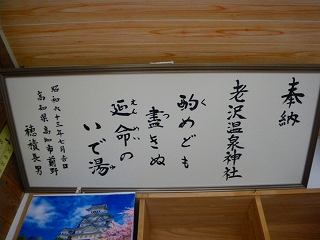 奉納
老沢温泉神社
酌めども
盡きぬ
延命の
いで湯
昭和六十三年七月吉日
高知県高知市前野
穂積長男